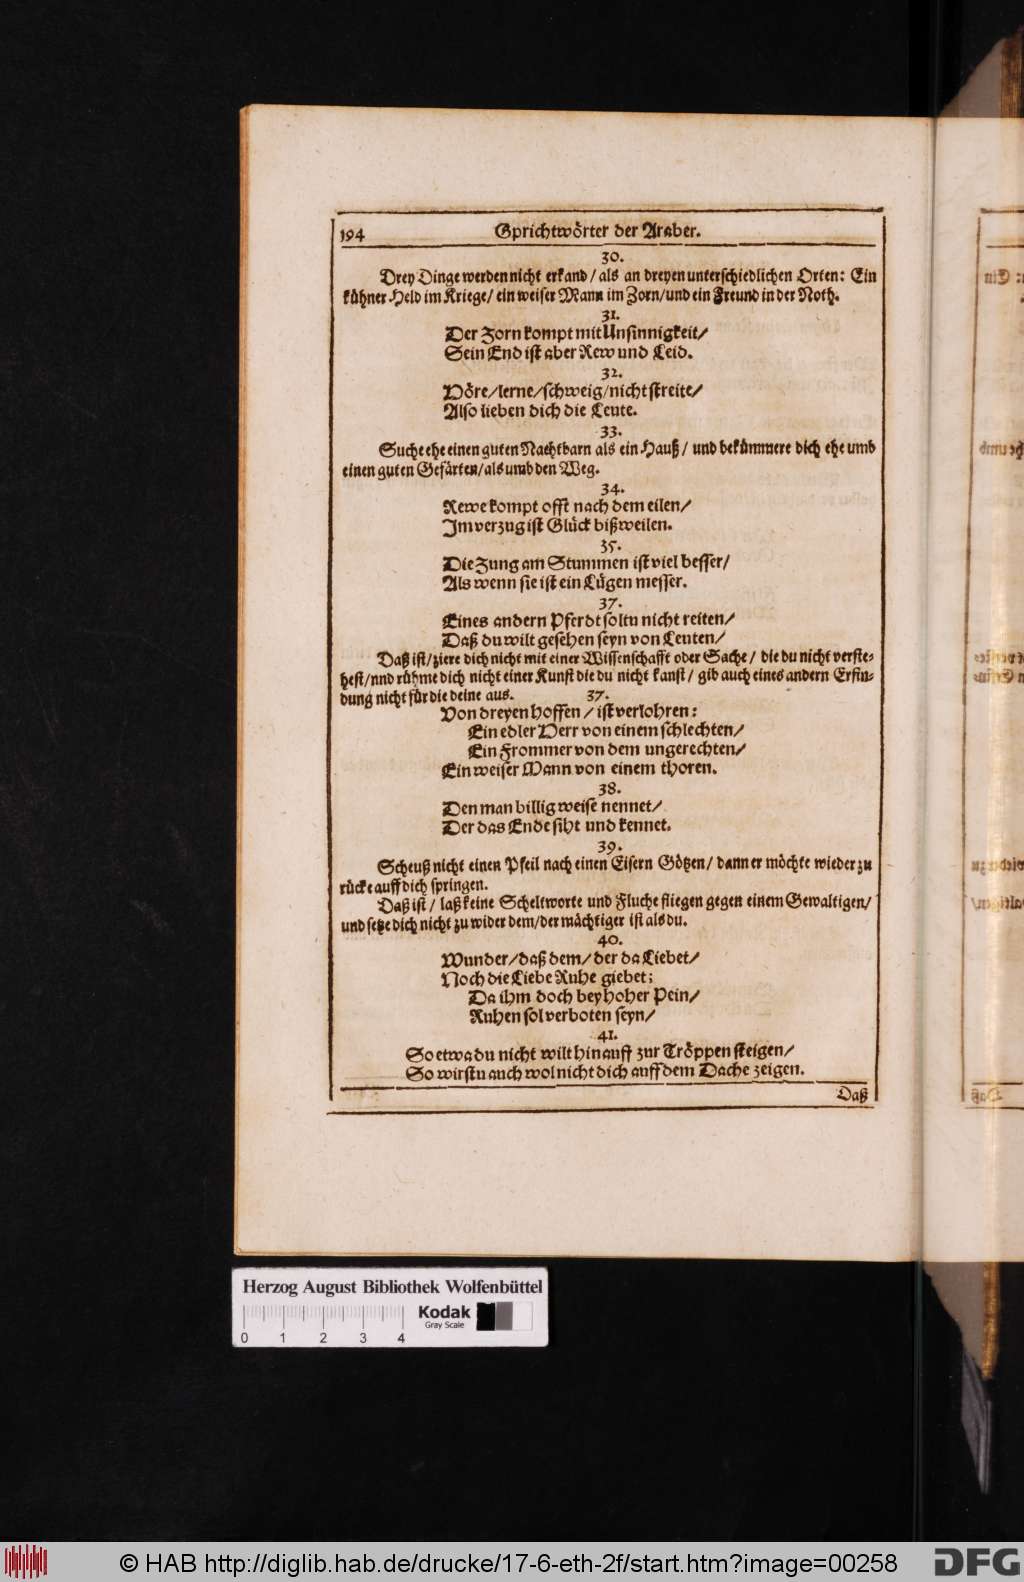 194
Sprichwörter der Araber.
30.
Drey Dinge werden nicht erkand / als an dreyen unterschiedlichen Orten: Ein
kühner Held im Kriege / ein weiser Mann im Zorn / und ein Freund in der Noth.
31.
Der Zorn kompt mit Unsinnigkeit /
Sein End ist aber Rew und Leid.
32.
Höre / lerne / schweig / nicht streite /
Also lieben dich die Leute.
33.
Suche ehe einen guten Nachtbarn als ein Hauß / und bekümmere dich ehe umb
einen guten Gefärten / als umb den Weg.
34.
Rewe kompt offt nach dem eilen /
Im verzug ist Glück bißweilen.
35.
Die Zung am Stummen ist viel besser /
Als wenn sie ist ein Lügen messer.
37.
Eines andern Pferdt soltu nicht reiten /
Daß du wilt gesehen seyn von Leuten /
Daß ist / ziere dich nicht mit einer Wissenschafft oder Sache / die du nicht verste-
hest / nnd rühme dich nicht einer Kunst die du nicht kanst / gib auch eines andern Erfin-
dung nicht für die deine aus.
37.
Von dreyen hoffen / ist verlohren:
Ein edler Herr von einem schlechten /
Ein Frommer von dem ungerechten /
Ein weiser Mann von einem thoren.
38.
Den man billig weise nennet /
Der das Ende siht und kennet.
39.
Scheuß nicht einen Pfeil nach einen Eisern Götzen / dann er möchte wieder zu
rücke auff dich springen.
Daß ist / laß keine Scheltworte und Fluche fliegen gegen einem Gewaltigen /
und setze dich nicht zu wider dem / der mächtiger ist als du.
40.
Wunder / daß dem / der da Liebet /
Noch die Liebe Ruhe giebet;
Da ihm doch bey hoher Pein /
Ruhen sol verboten seyn /
41.
So etwa du nicht wilt hinauff zur Tröppen steigen /
So wirstu auch wol nicht dich auff dem Dache zeigen.
Daß
Herzog August Bibliothek Wolfenbüttel
Kodak
Gray Scale
0 1 2 3 4
© HAB http://diglib.hab.de/drucke/17-6-eth-2f/start.htm?image=00258
DFG